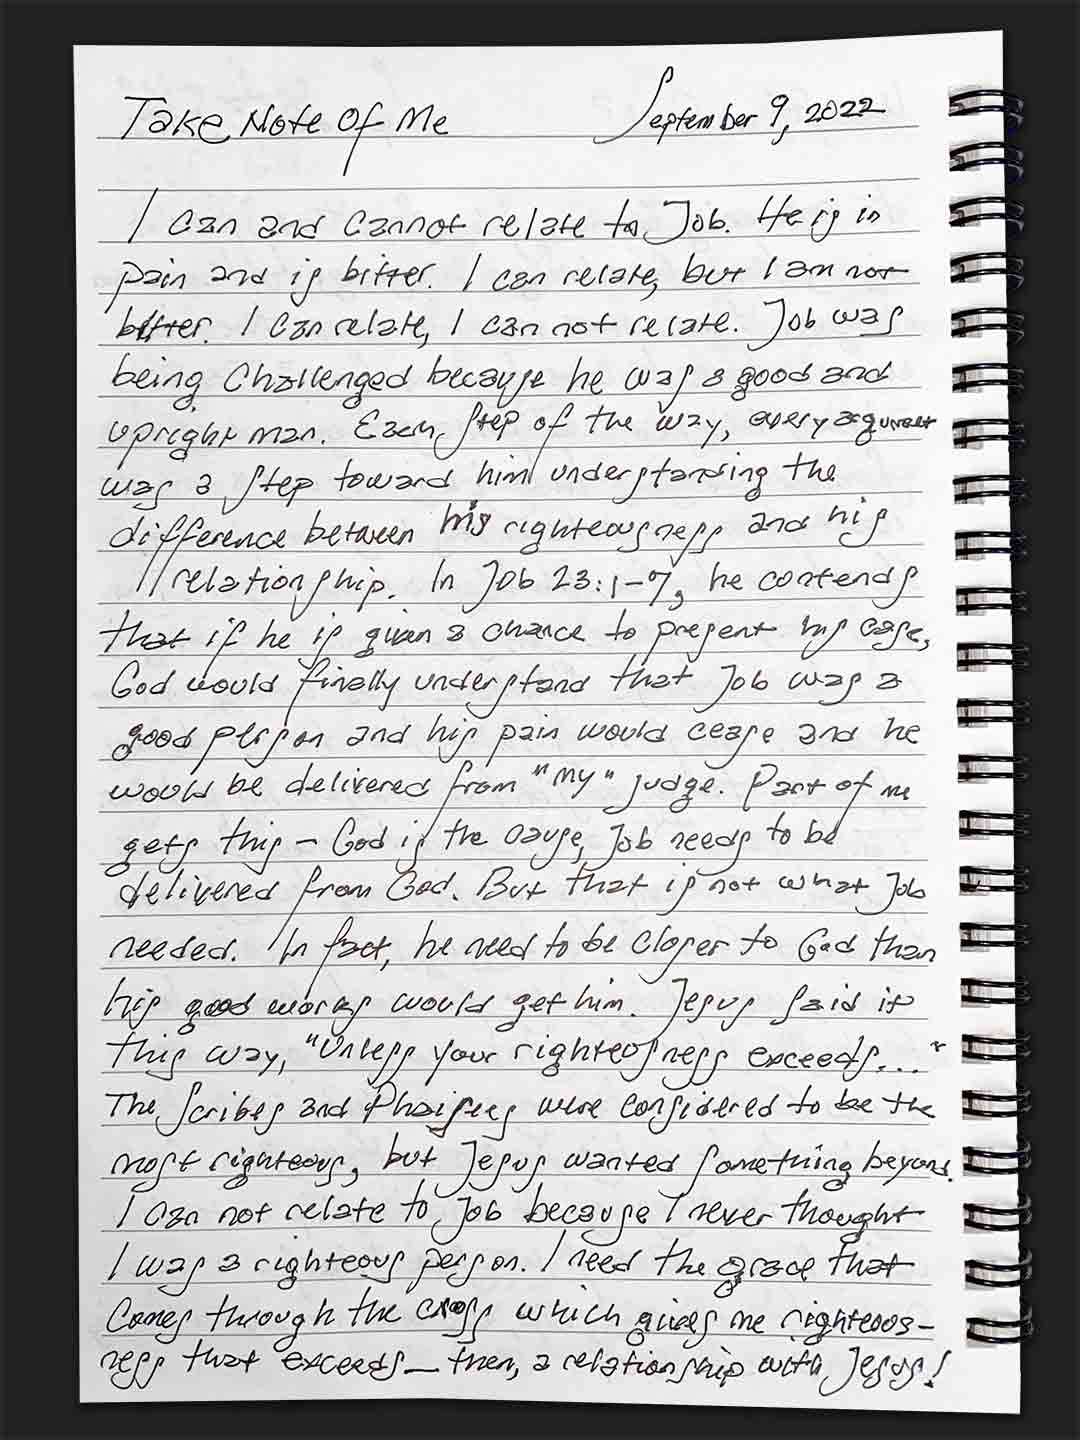 Take Note Of Me September 9, 2022
I can and cannot relate to Job. He is in
pain and is bitter. I can relate, but I am not
bitter. I can relate, I can not relate. Job was
being challenged because he was a good and
upright man. Each step of the way, every argument
was a step toward him understanding the
difference between his righteousness and his
relationship. In Job 23:1-7, he contends
that if he is given a chance to present his case,
God would finally understand that Job was a
good person and his pain would cease and he
would be delivered from "my" judge. Part of me
gets this - God is the cause, Job needs to be
delivered from God. But that is not what Job
needed. In fact, he need to be closer to God than
his good works would get him. Jesus said it
this way, "Unless your righteosness exceeds..."
The Scribes and Phaisees were considered to be the
most righteous, but Jesus wanted something beyond.
I can not relate to Job because I never thought
I was a righteous person. I need the grace that
comes through the cross which gives me righteous-
ness that exceeds - then, a relationship with Jesus!